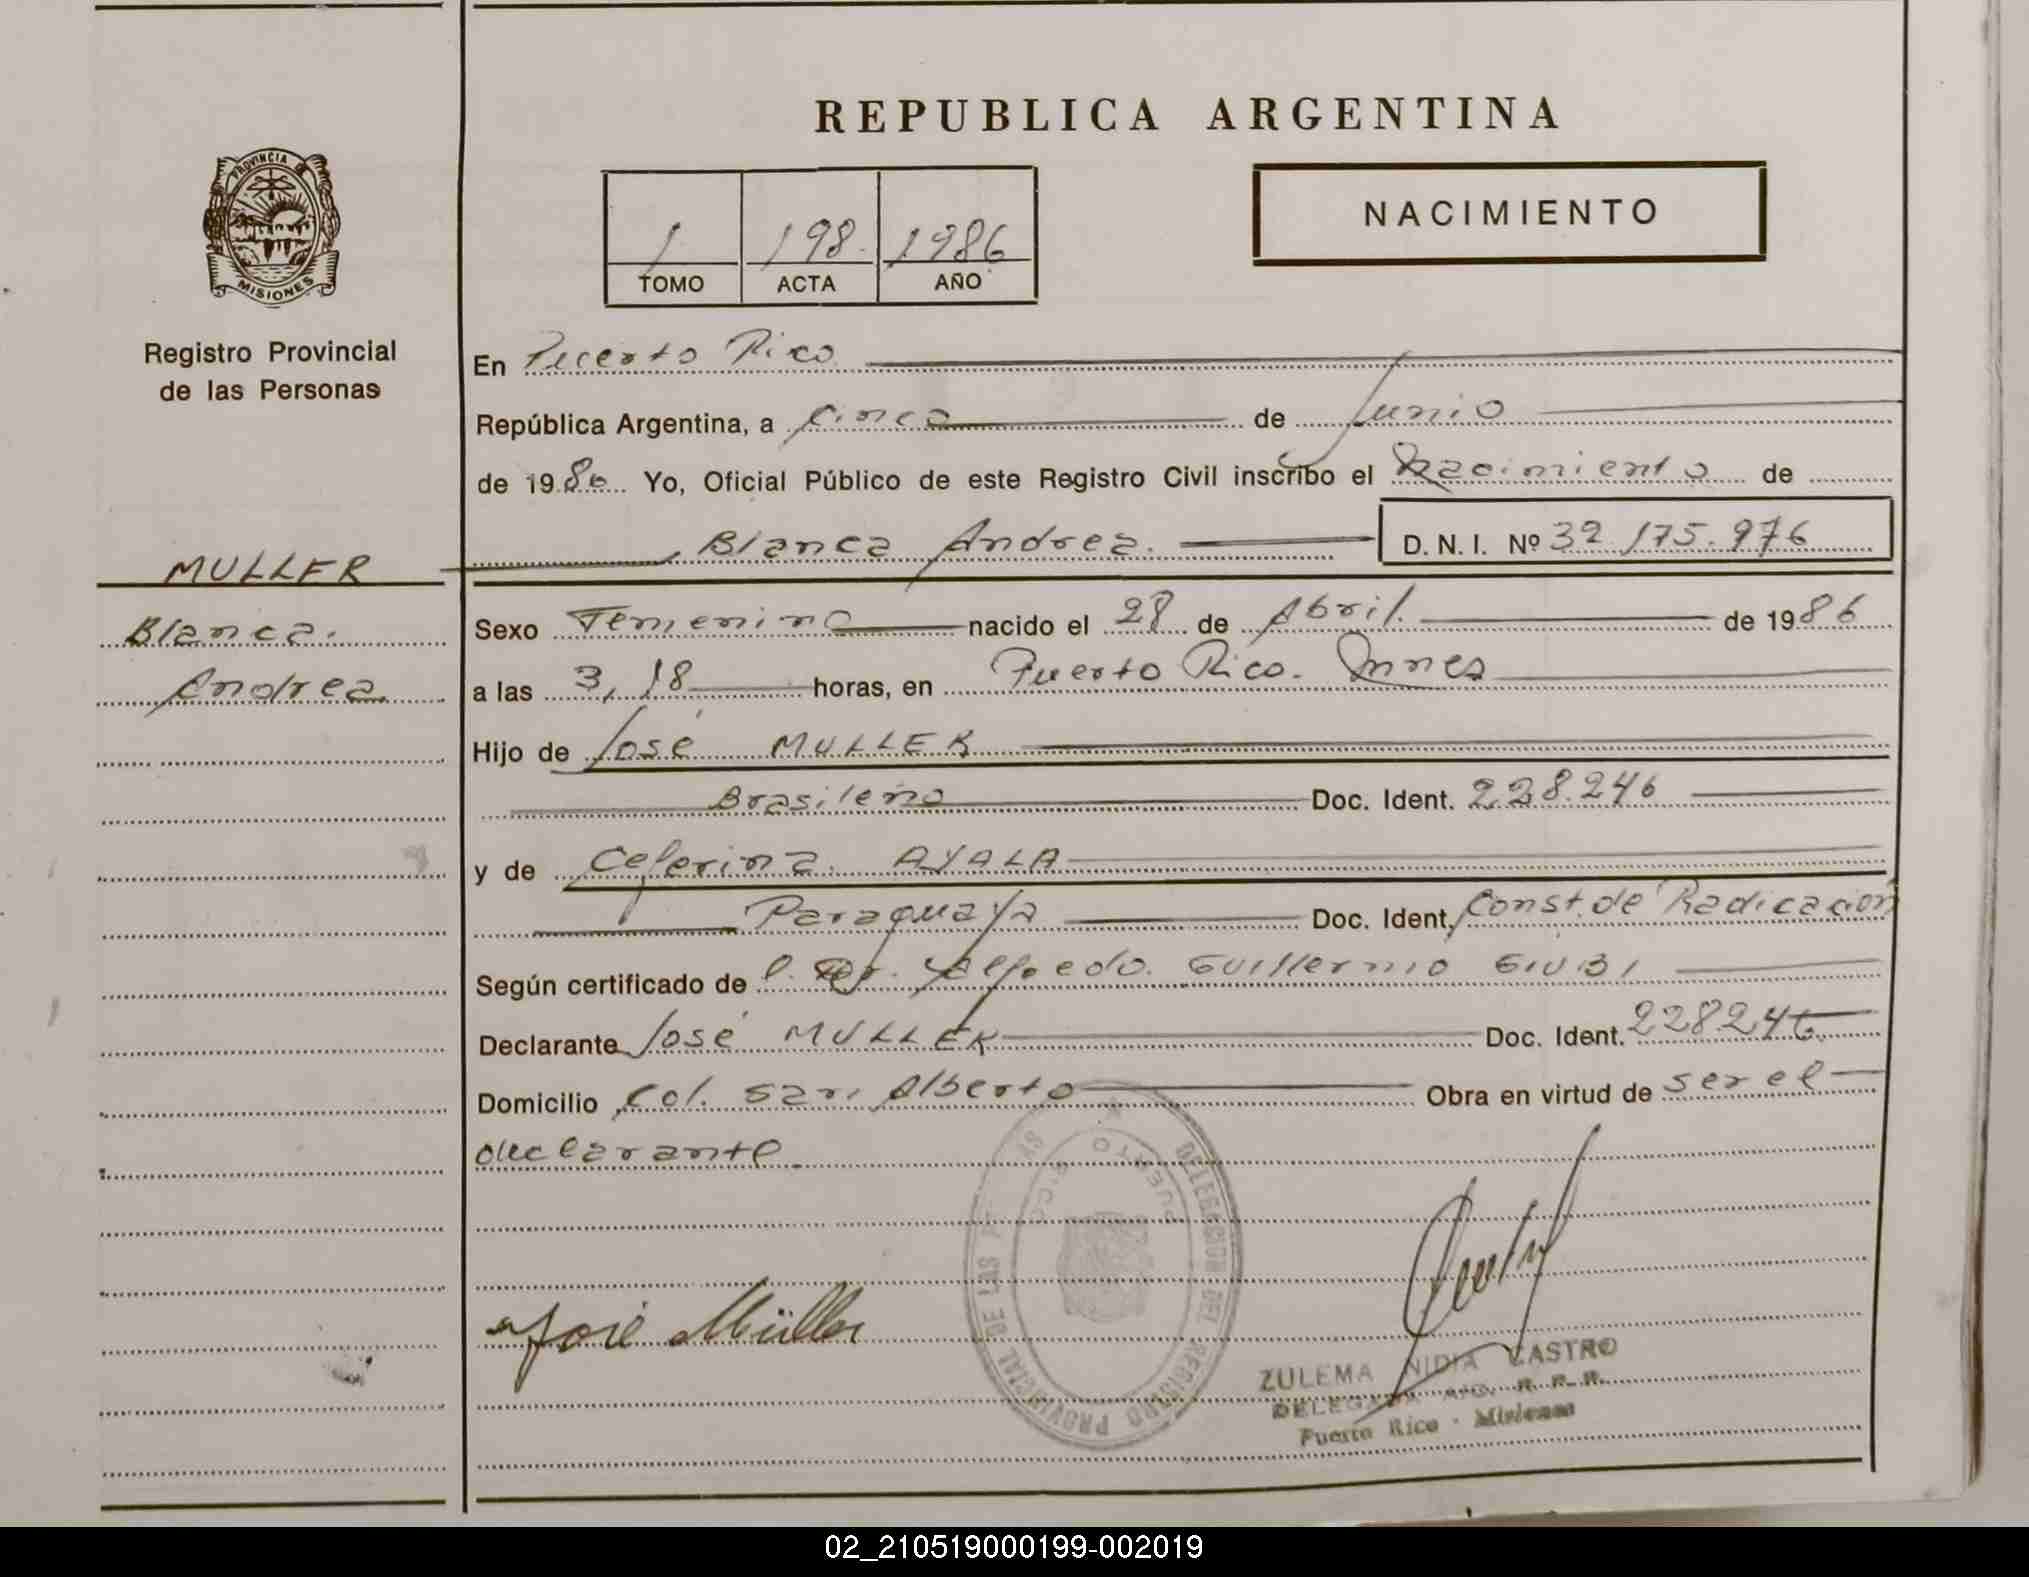 REPUBLICA ARGENTINA
PROVINCIA
MISIONES
Registro Provincial
de las Personas
1 198 1986
TOMO ACTA AÑO
NACIMIENTO
En Puerto Rico
República Argentina, a cinco de Junio
de 1986 Yo, Oficial Público de este Registro Civil inscribo el Nacimiento de
Blanca Andrea. D. N. I. Nº 32.175.976
MULLER
Blanca.
Andrea
Sexo Femenino nacido el 28 de Abril. de 1986
a las 3,18 horas, en Puerto Rico. Mnes
Hijo de José MULLER
Brasileño Doc. Ident. 228.246
y de Ceferina. AYALA
Paraguaya Doc. Ident. Const. de Radicación
Según certificado de Dr. Alfredo. Guillermo GIUBI
Declarante José MULLER Doc. Ident. 228246
Domicilio Col. San Alberto Obra en virtud de ser el
declarante.
DELEGACION DEL REGISTRO PROVINCIAL DE LAS
PUERTO RICO
José Müller
ZULEMA NIDIA CASTRO
DELEGADA R. P. P.
Puerto Rico - Misiones
02_210519000199-002019